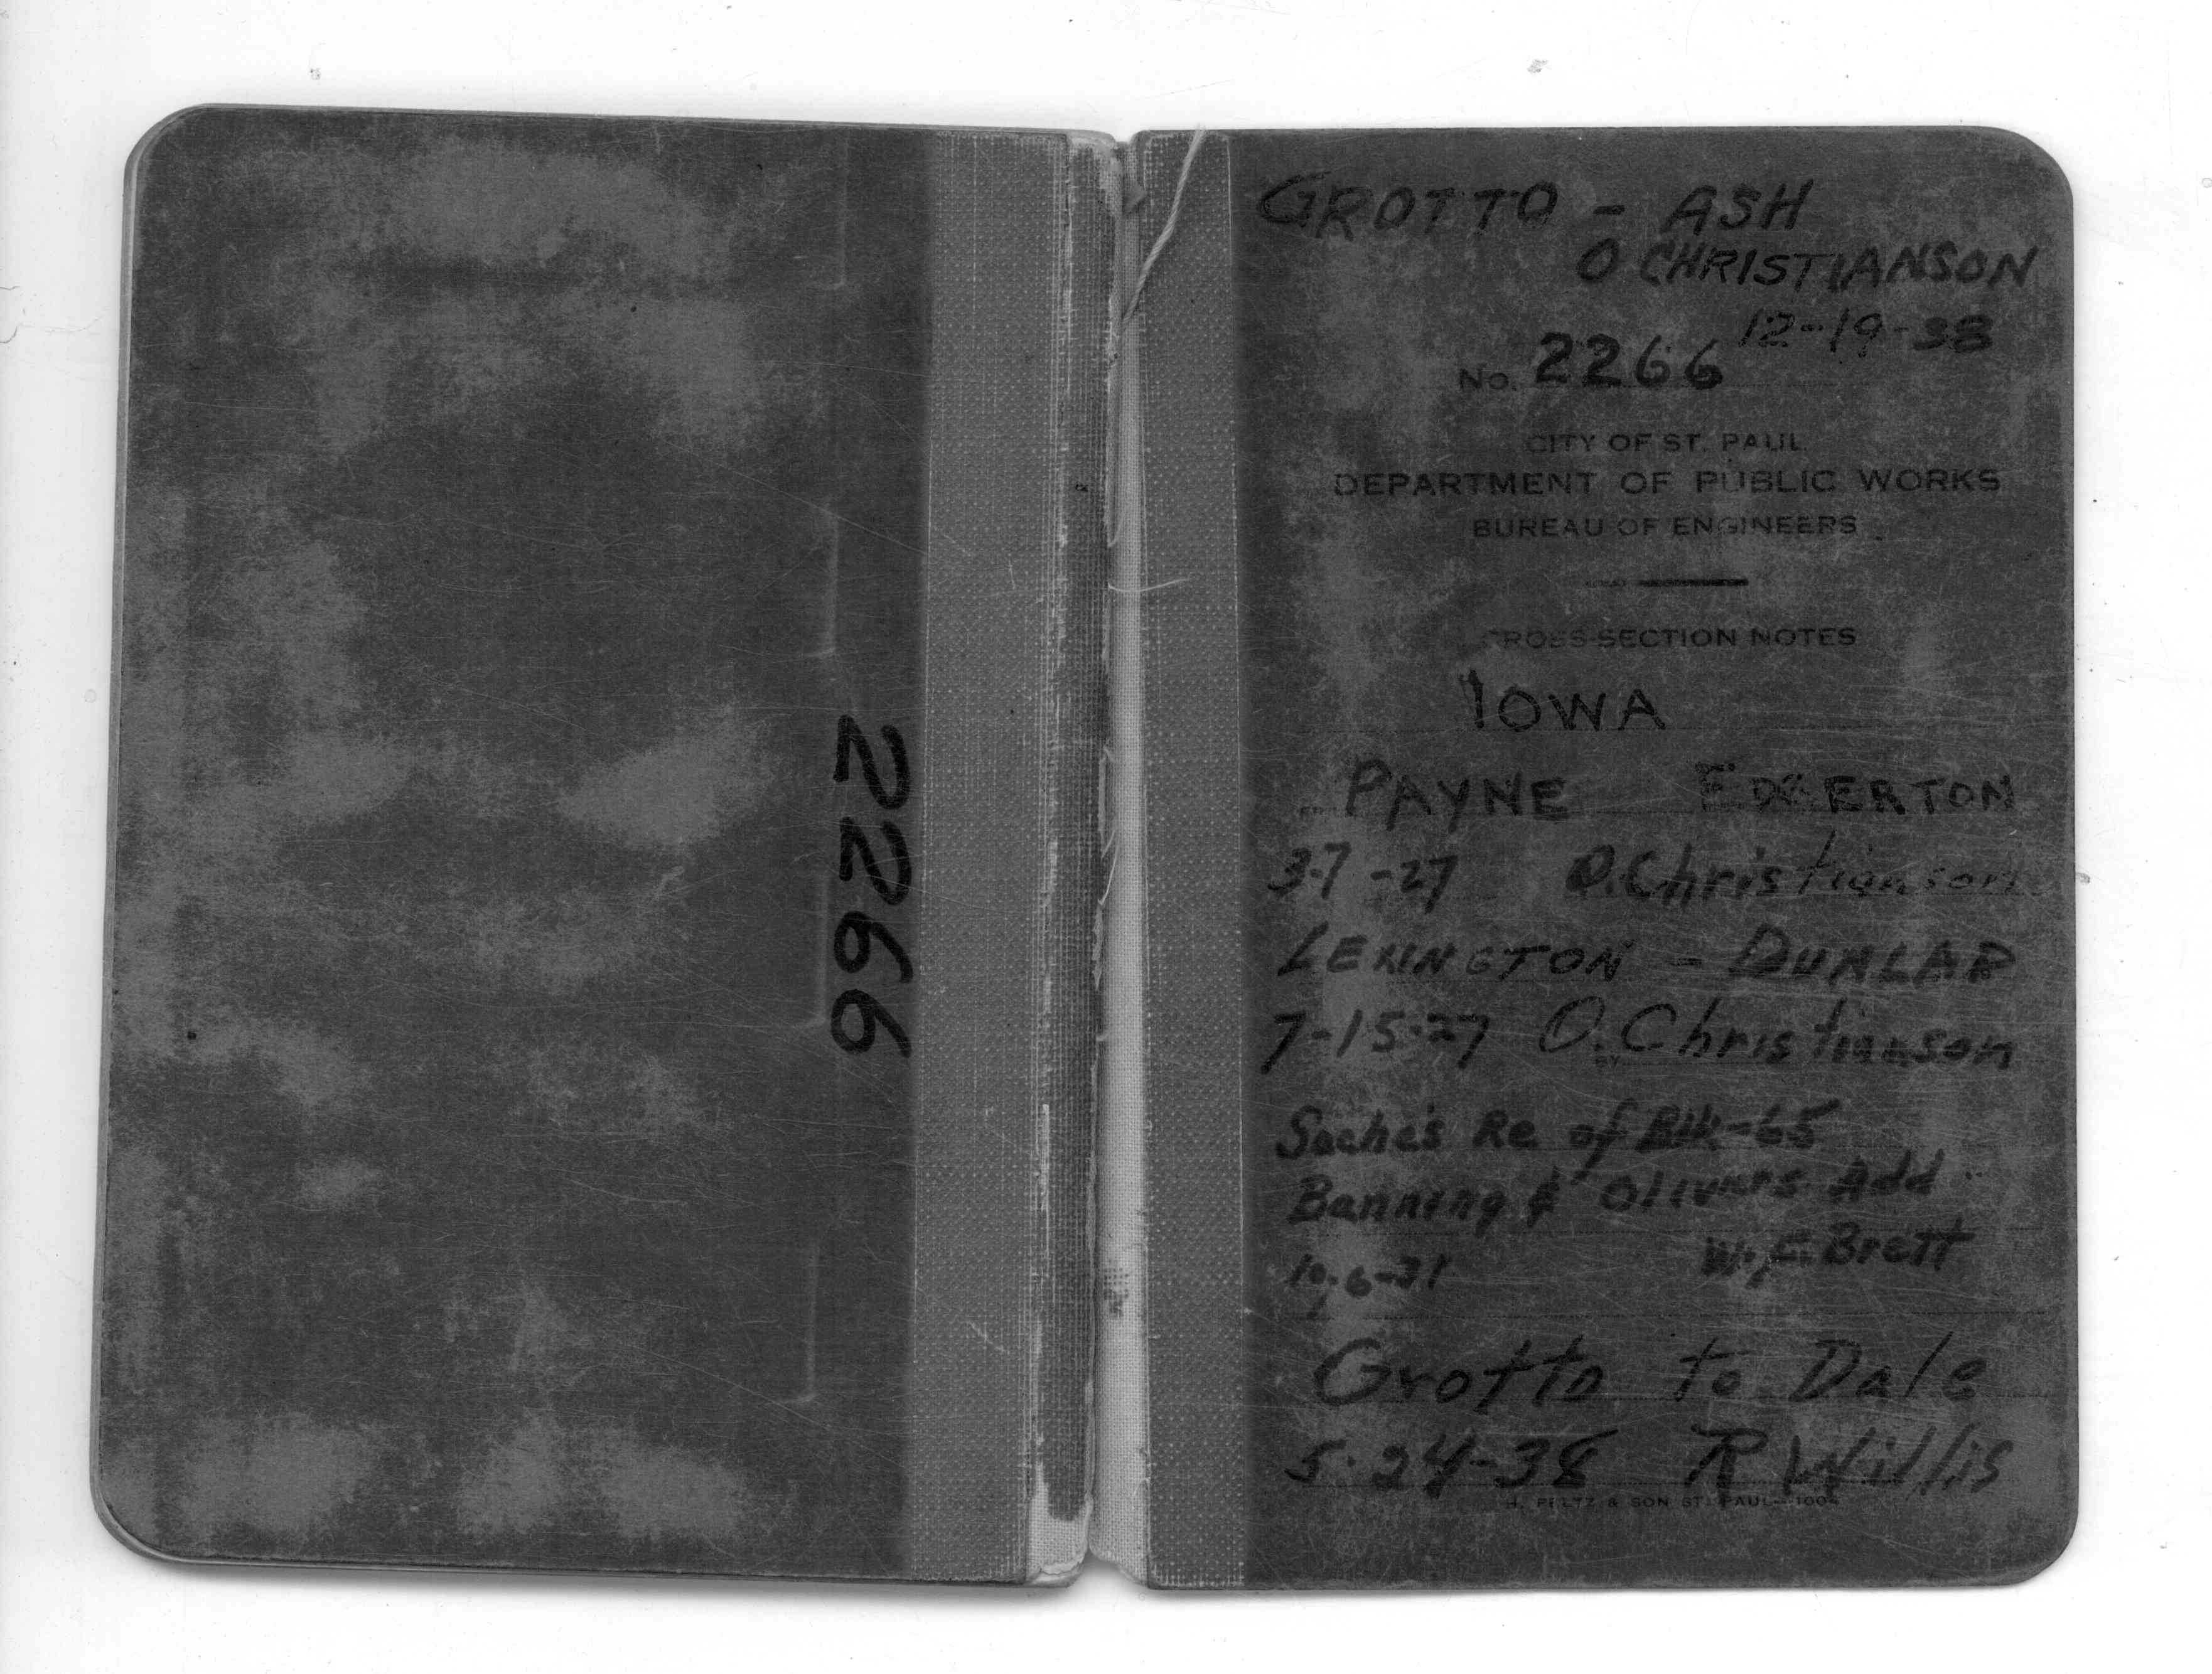 2266
GROTTO - ASH
O CHRISTIANSON
12-19-38
No. 2266
CITY OF ST. PAUL
DEPARTMENT OF PUBLIC WORKS
BUREAU OF ENGINEERS
CROSS-SECTION NOTES
IOWA
PAYNE EDGERTON
3-7-27 O. Christianson
LEXINGTON - DUNLAP
7-15-27 O. Christianson
BY
Re of Blk-65
Banning & Olivers Add
W. F. Brett
10-6-31
Grotto to Dale
5-24-38 R Willis
H. PELTZ & SON ST. PAUL-1004